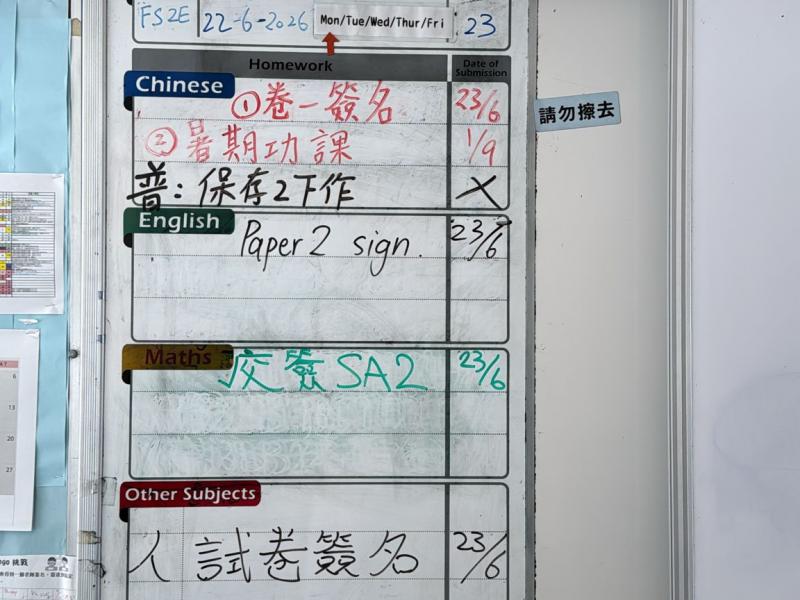 FS2E 22-6-2026 Mon/Tue/Wed/Thur/Fri 23
Homework Date of Submission
Chinese
①卷一簽名 23/6
②暑期功課 1/9
普：保存2下作 X
請勿擦去
English
Paper 2 sign. 23/6
Maths
交簽SA2 23/6
Other Subjects
人試卷簽名 23/6
6
13
20
27
挑戰